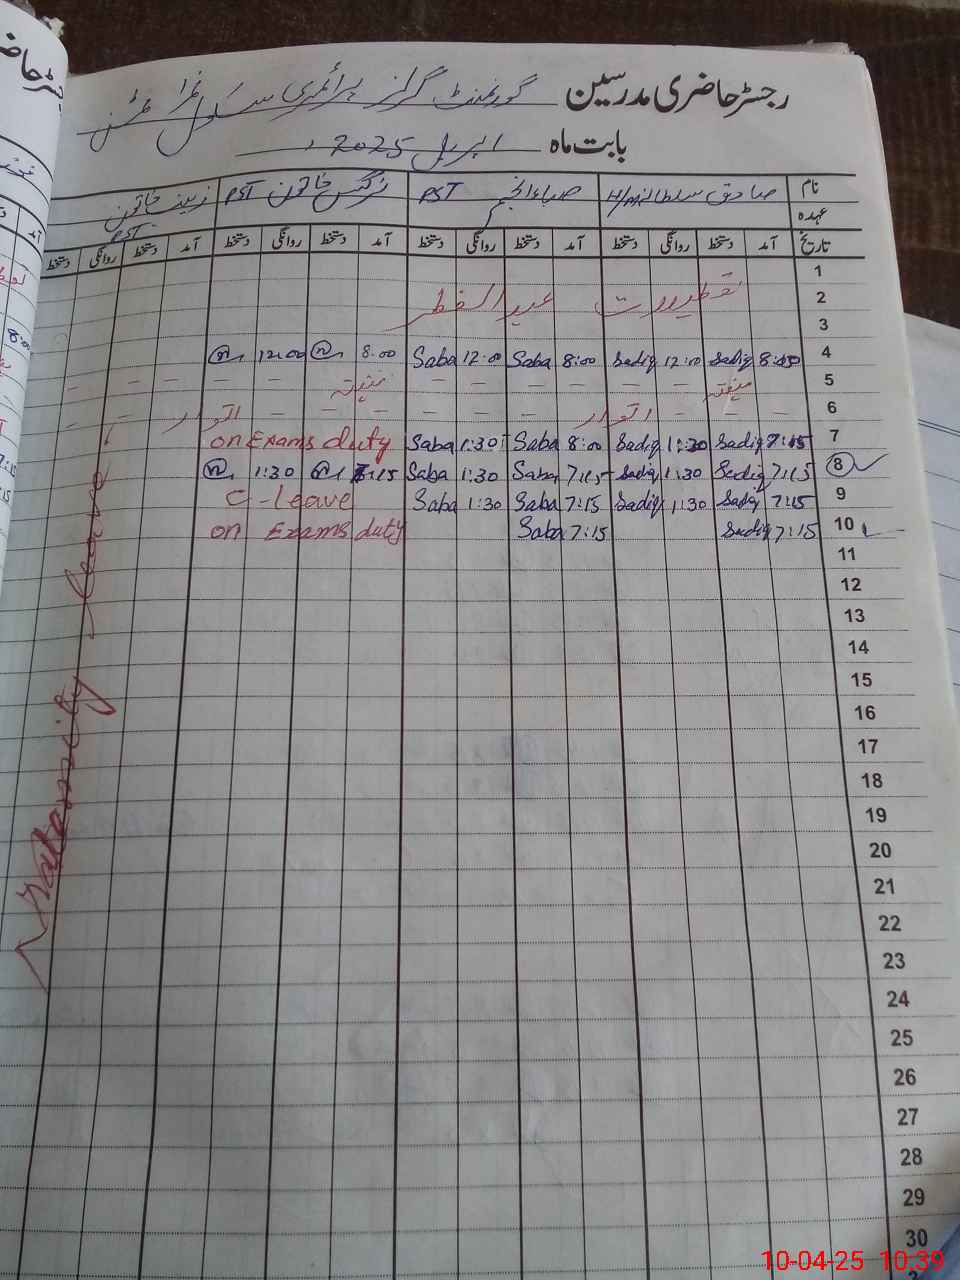 رجسٹر حاضری مدرسین گورنمنٹ گرلز پرائمری سکول
بابت ماہ اپریل 2025ء
نام صادق سلطانہ H/M صباء انجم PST نرگس خاتون PST زینب خاتون
عہدہ PST
تاریخ آمد دستخط روانگی دستخط آمد دستخط روانگی دستخط آمد دستخط روانگی دستخط آمد دستخط روانگی دستخط
1
2 عید الفطر
3
4 8:00 Sadiq 12:00 Sadiq 8:00 Saba 12:00 Saba 8.00 12:00
5 ہفتہ - - - - - - ہفتہ - - - - -
6 - - اتوار - - - - - - اتوار -
7 7:15 Sadiq 1:30 Sadiq 8:00 Saba 1:30 Saba on Exams duty
8 7:15 Sadiq 1:30 Sadiq 7:15 Saba 1:30 Saba 7:15 1:30
9 7:15 Sadiq 1:30 Sadiq 7:15 Saba 1:30 Saba C-leave
10 7:15 Sadiq 7:15 Saba on Exams duty
Maternity leave
11
12
13
14
15
16
17
18
19
20
21
22
23
24
25
26
27
28
29
30
10-04-25 10:39